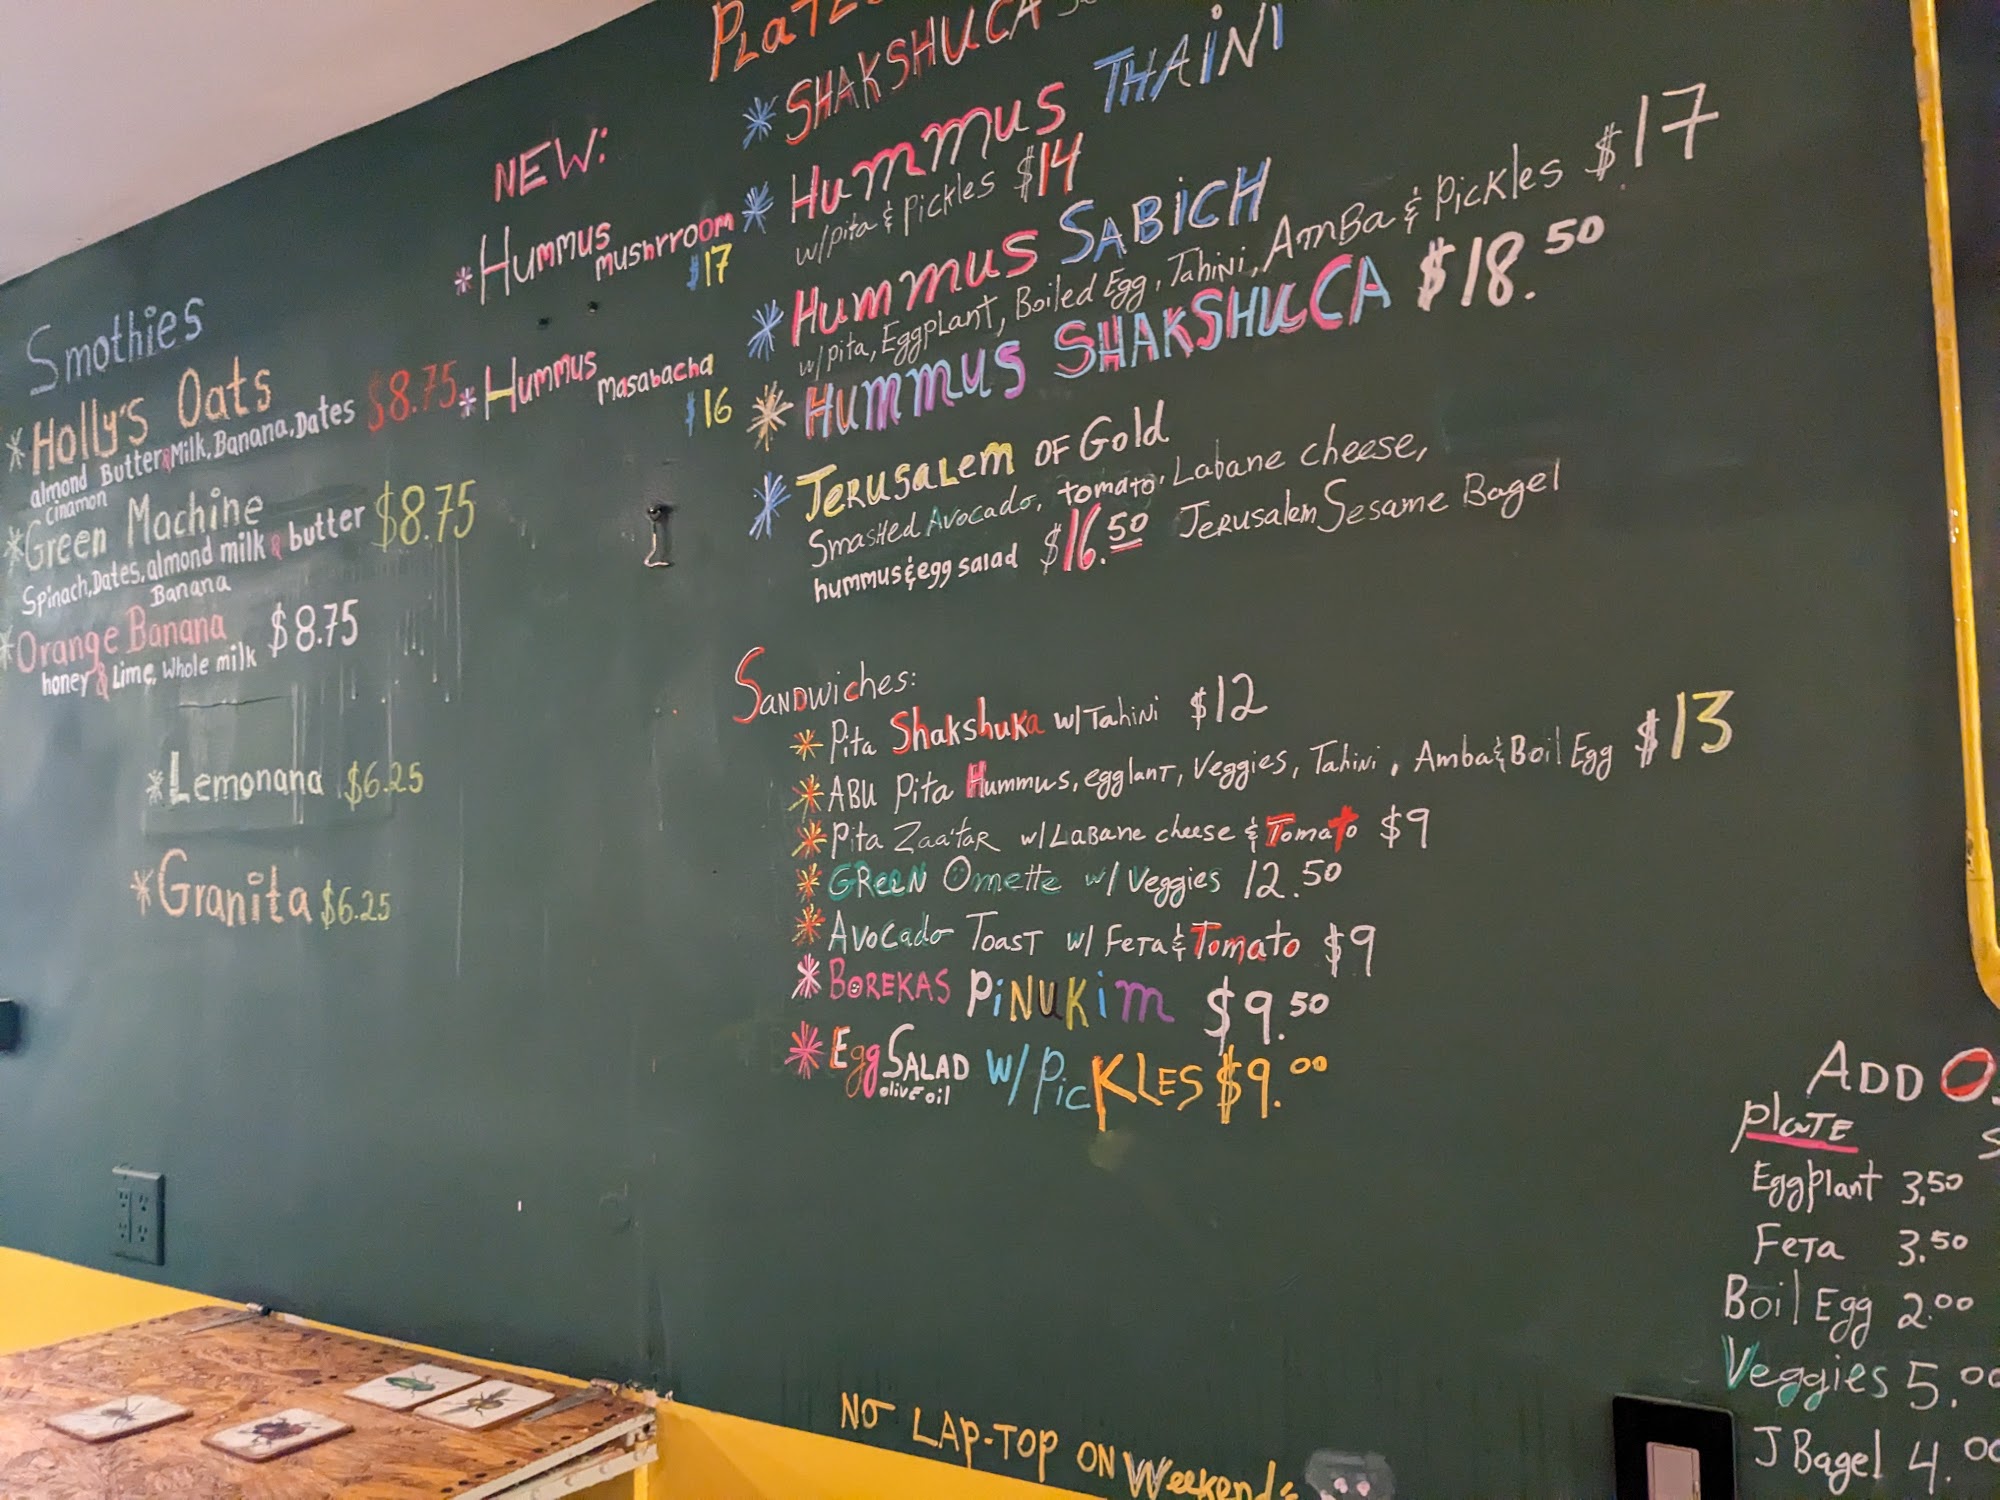 Smothies
* Holly's Oats
almond Butter & Milk, Banana, Dates $8.75
cinamon
* Green Machine
Spinach, Dates, almond milk & butter $8.75
Banana
* Orange Banana $8.75
honey & Lime, Whole milk
* Lemonana $6.25
* Granita $6.25
NEW:
* Hummus
mushrroom
$17
* Hummus
masabacha
$16
* SHAKSHUCA
* Hummus THAINI
w/pita & pickles $14
* Hummus SABICH
w/pita, EggpLant, Boiled Egg, Tahini, AmBa & pickles $17
* Hummus SHAKSHUCCA $18.50
* JERUSALEM OF Gold
Smashed Avocado, tomato, Labane cheese,
hummus & egg salad $16.50 JERUSALEM Sesame Bagel
SANDWiches:
* Pita Shakshuka w/Tahini $12
* ABU Pita Hummus, egglant, Veggies, Tahini, Amba & Boil Egg $13
* Pita Zaa'taR w/LaBane cheese & Tomato $9
* GReeN Omette w/ Veggies 12.50
* Avocado Toast w/ FeTa & Tomato $9
* BOREKAS PiNUKiM $9.50
* Egg SALAD w/ PicKLES $9.00
olive oil
ADD
PlaTE
Eggplant 3.50
FeTa 3.50
Boil Egg 2.00
Veggies 5.00
J Bagel 4.00
NO LAP-TOP ON Weekends